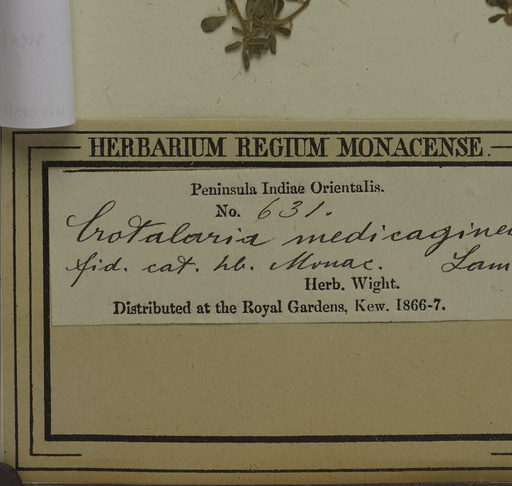 HERBARIUM REGIUM MONACENSE.
Peninsula Indiae Orientalis.
No. 631.
Crotalaria medicaginea
fid. cat. hb. Monac. Lam
Herb. Wight.
Distributed at the Royal Gardens, Kew. 1866-7.